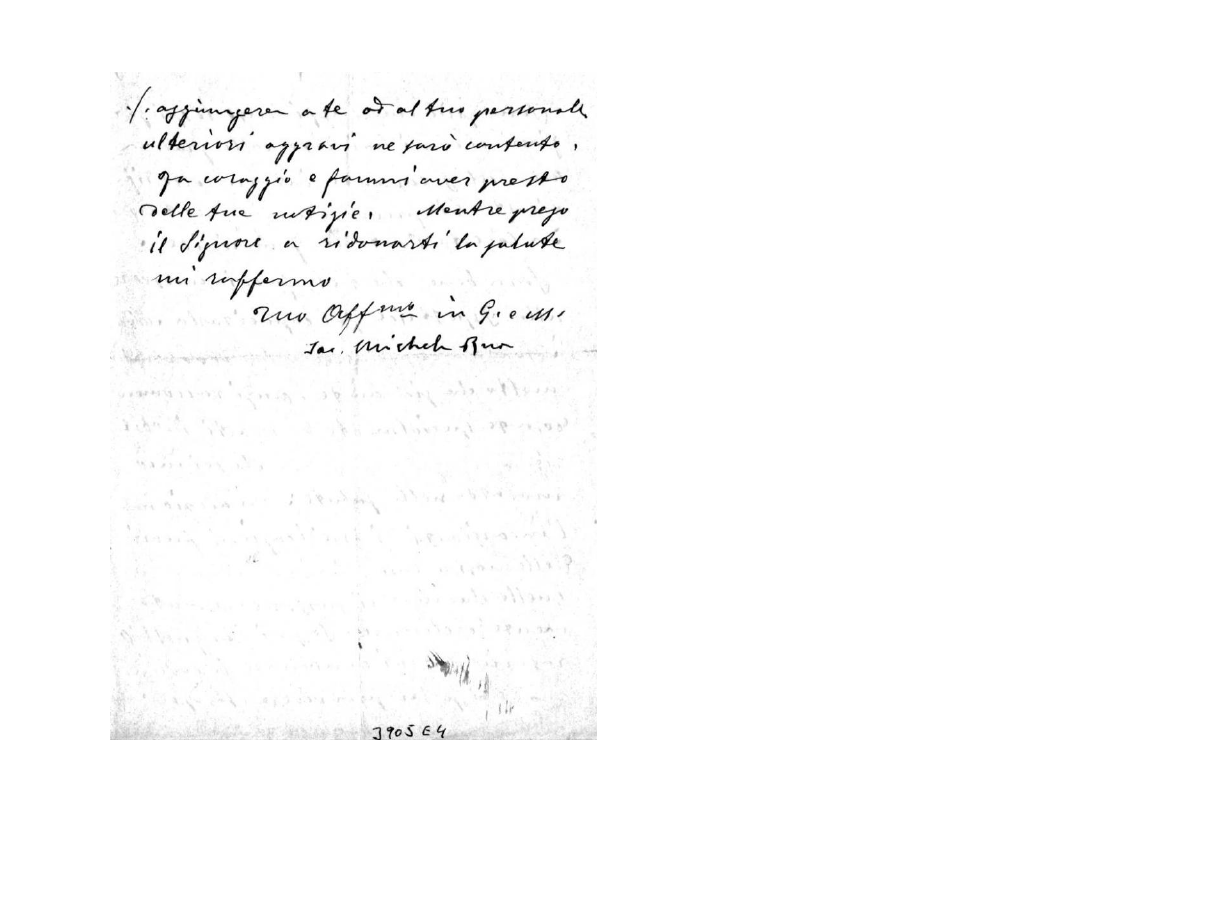 ./. aggiungere a te ed al tuo personale
ulteriori aggravi ne sarò contento.
Fa coraggio e fammi aver presto
delle tue notizie. Mentre prego
il Signore a ridonarti la salute
mi raffermo
Tuo Aff.mo in G. e M.
Sac. Michele Rua
3905 E 4